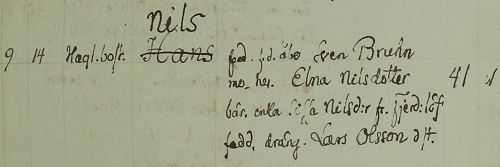 Nils
9 14 Hagl. bostr. Hans fad. Sven Bruhn
mo. Elna Nilsdotter 41
bär. enka Nilsd:r fr. Fjerd:löf
fadd. dräng. Lars Olsson